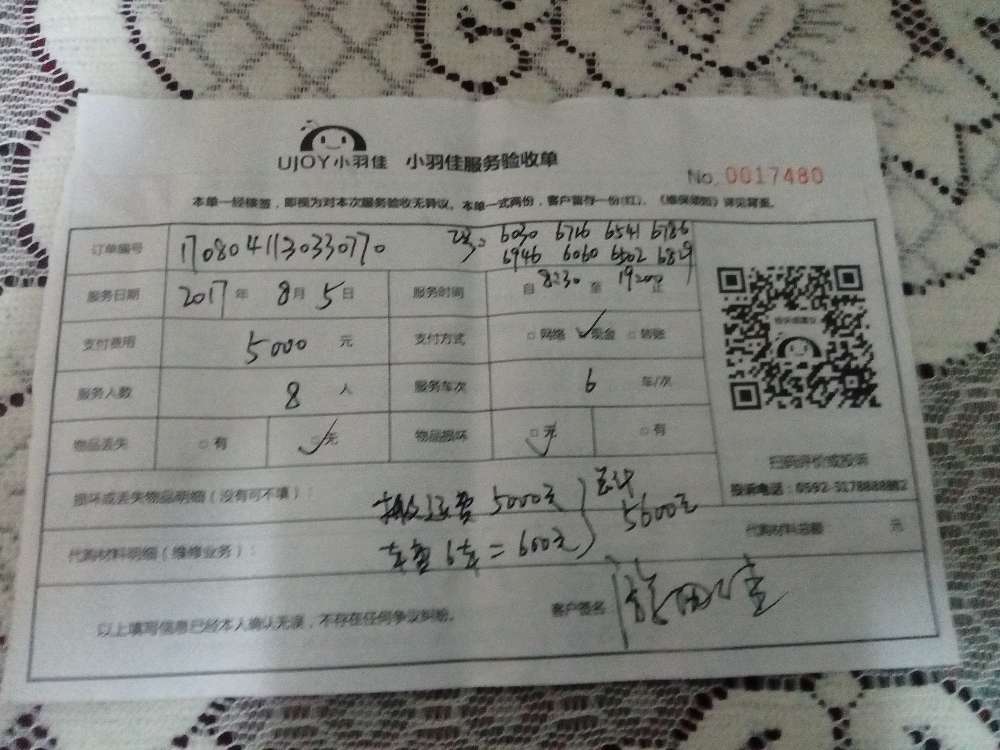 UJOY小羽佳 小羽佳服务验收单
No. 0017480
本单一经接签，即视为对本次服务验收无异议。本单一式两份，客户留存一份(红)，《维保须知》详见背面。
订单编号 1708041130330770 工号: 6030 6726 6541 6786
6946 6060 6502 6829
服务日期 2017年 8月 5日 服务时间 自 8:30 至 19:00 止
支付费用 5000 元 支付方式 □网络 ✓现金 □转账
服务人数 8 人 服务车次 6 车/次
物品丢失 □有 ✓无 物品损坏 ✓无 □有
扫码评价或投诉
损坏或丢失物品明细（没有可不填）： 搬运费 5000元 总计
投诉电话：0592-
5600元
代购材料明细（维修业务）： 车费6车=600元 代购材料总额 元
以上填写信息已经本人确认无误，不存在任何争议纠纷。 客户签名